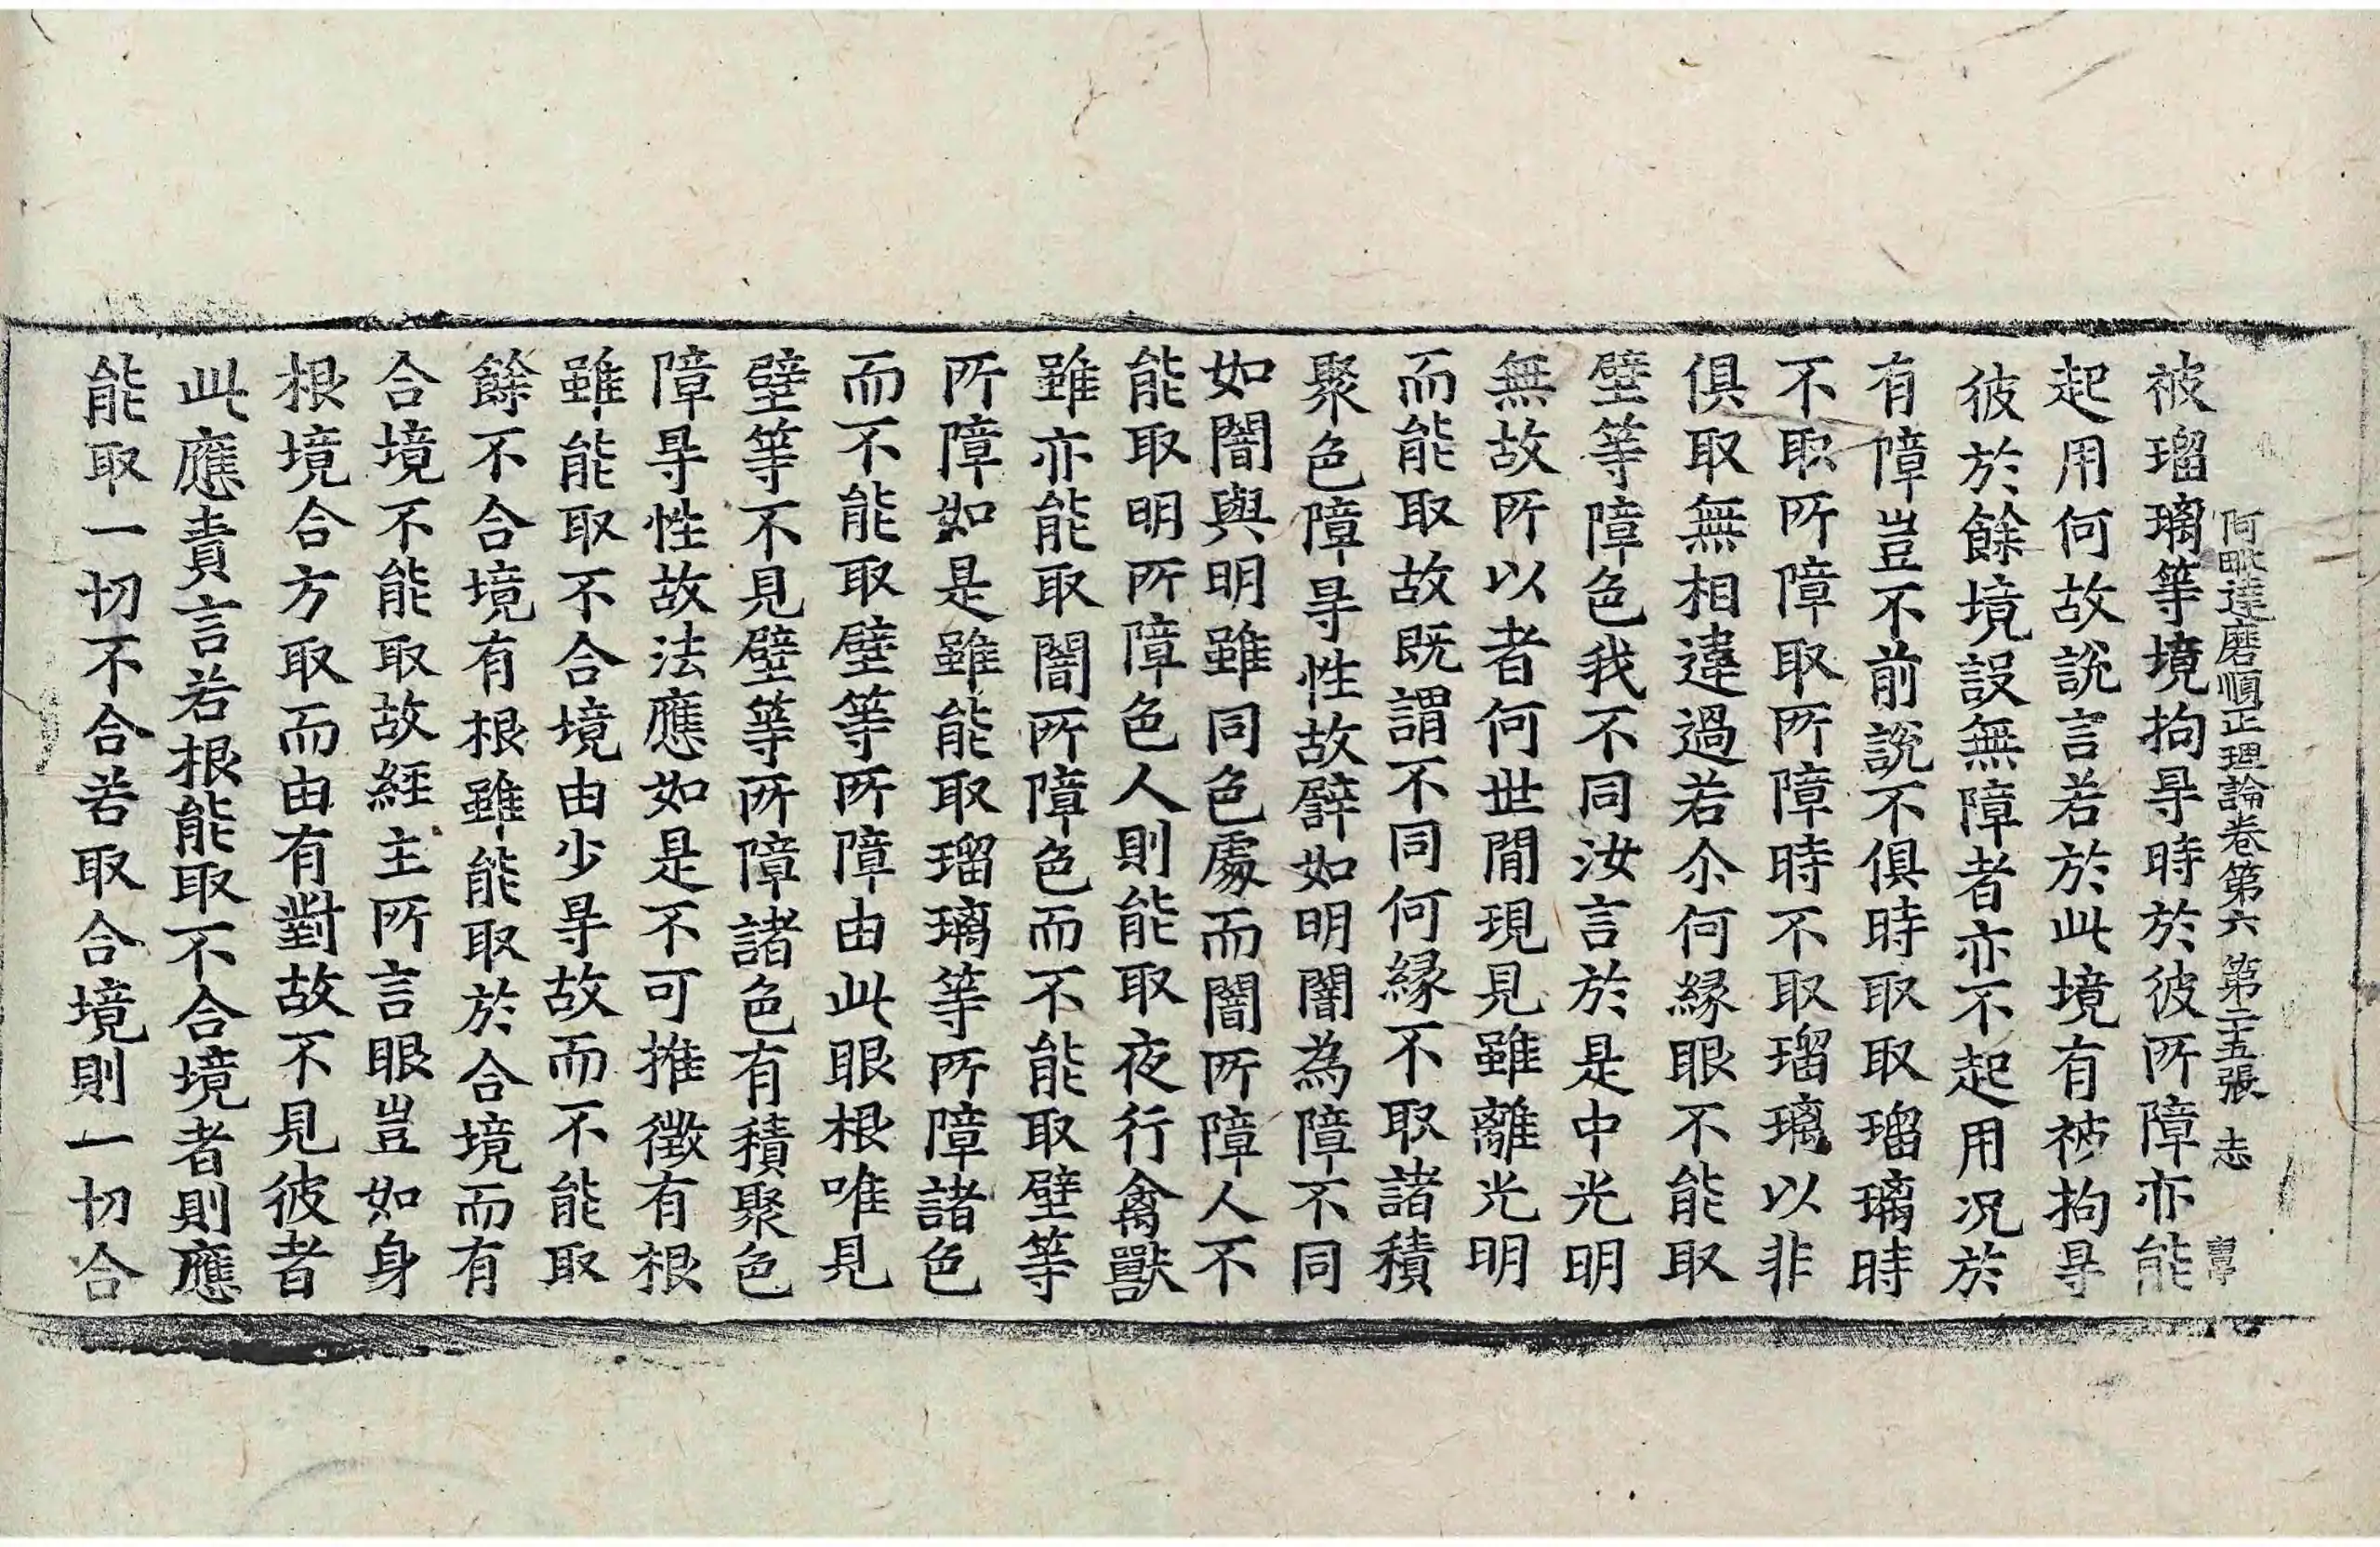 阿毗達磨順正理論卷第六 第二十五張 志
被瑠璃等境拘㝵時於彼所障亦能
起用何故說言若於此境有被拘㝵
彼於餘境設無障者亦不起用况於
有障豈不前說不俱時取取瑠璃時
不取所障取所障時不取瑠璃以非
俱取無相違過若尒何緣眼不能取
壁等障色我不同汝言於是中光明
無故所以者何世閒現見雖離光明
而能取故既謂不同何緣不取諸積
聚色障㝵性故譬如明闇為障不同
如闇與明雖同色處而闇所障人不
能取明所障色人則能取夜行禽獸
雖亦能取闇所障色而不能取壁等
所障如是雖能取瑠璃等所障諸色
而不能取壁等所障由此眼根唯見
壁等不見壁等所障諸色有積聚色
障㝵性故法應如是不可推徵有根
雖能取不合境由少㝵故而不能取
餘不合境有根雖能取於合境而有
合境不能取故經主所言眼豈如身
根境合方取而由有對故不見彼者
此應責言若根能取不合境者則應
能取一切不合若取合境則一切合